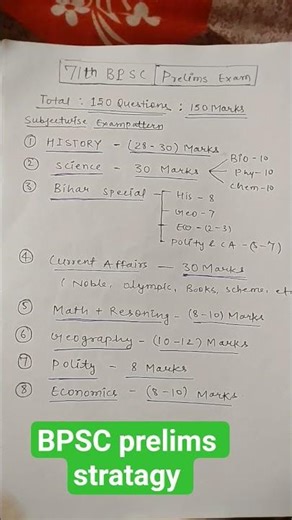 71th BPSC Prelims Exam
Total : 150 Questions : 150 Marks
Subjectwise Exampattern
① HISTORY - (28-30) Marks
② Science - 30 Marks
Bio - 10
Phy - 10
Chem - 10
③ Bihar Special
His - 8
Geo - 7
Eco - (2-3)
Polity & CA - (5-7)
④ Current Affairs - 30 Marks
(Noble, olympic, Books, Scheme. etc
⑤ Math + Resoning - (8-10) Marks
⑥ Geography - (10-12) Marks
⑦ Polity - 8 Marks
⑧ Economics - (8-10) Marks
BPSC prelims
stratagy